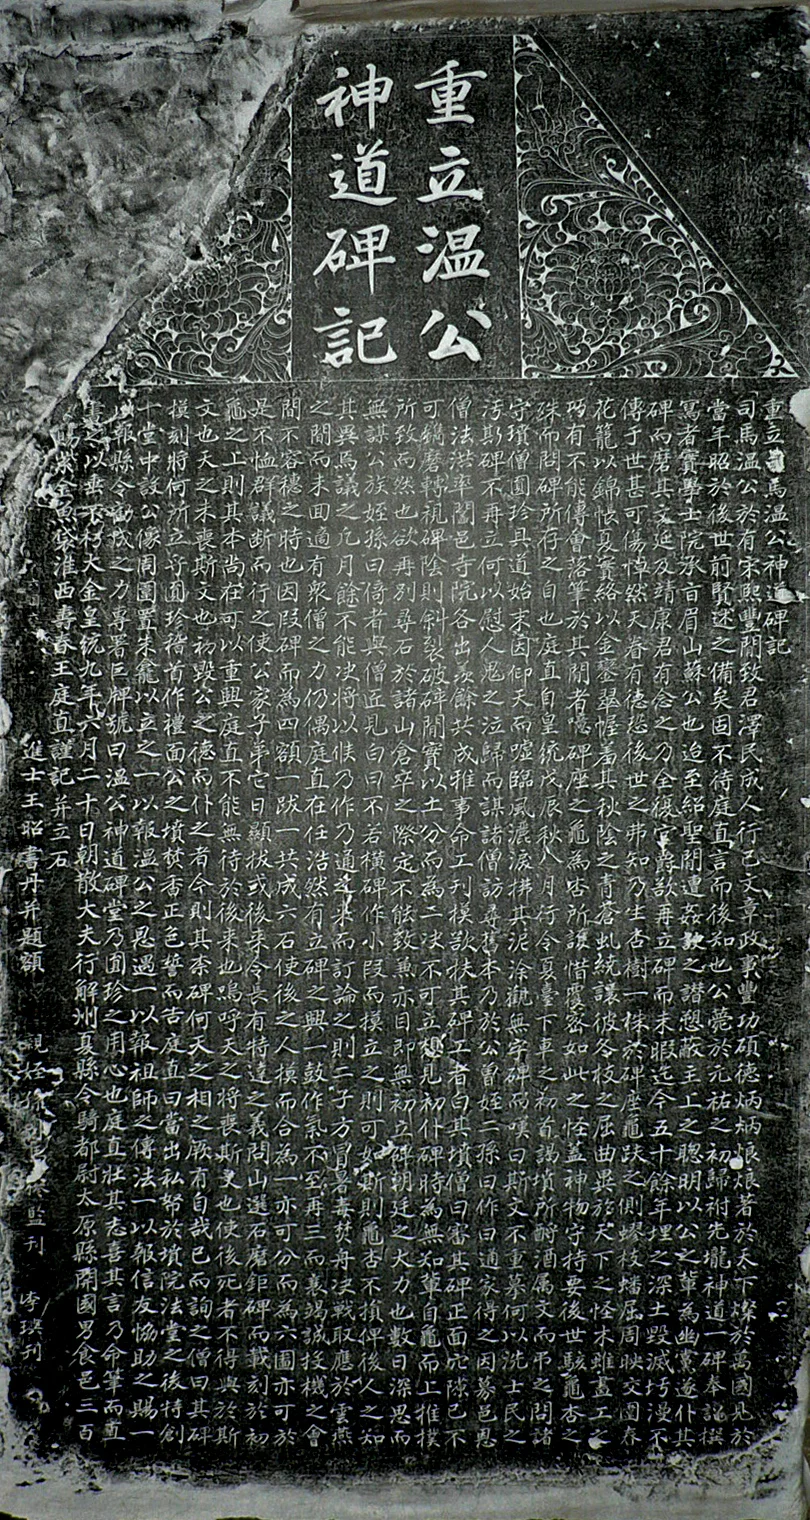 重立溫公
神道碑記
重立司馬溫公神道碑記
司馬溫公於有宋熙豐間致君澤民成人行己文章政事豐功碩德炳炳烺烺著於天下燦於萬國見於
當年昭於後世前賢述之備矣固不待庭直言而後知也公薨於元祐之初歸祔先壠神道一碑奉詔撰
寫者實學士院承旨眉山蘇公也迨至紹聖間遭姦諛之譖愬蔽主上之聰明以公之輩為幽黨遂仆其
碑而磨其文延及靖康君有念之乃全復官爵欲再立碑而未暇迄今五十餘年埋之深土毀滅圬漫不
傳于世甚可傷悼然天眷有德恐後世之弗知乃生杏樹一株於碑座龜趺之側蟉枝蟠屈周映交圍春
花籠以錦悵夏實絡以金鑾翠幄羞其秋陰之青蒼虬繞讓彼冬枝之屈曲異於天下之怪木雖畫工之
巧有不能傳會落筆於其間者噫碑座之龜為杏所護惜覆密如此之怪蓋神物守持要後世駭龜杏之
殊而問碑所存之自也庭直自皇統戊辰秋八月行令夏臺下車之初首謁墳所酹酒属文而弔之問諸
守墳僧圓珍具道始末因仰天而噓臨風灑淚拂其泥涂觀無字碑而嘆曰斯文不重摹何以洗士民之
汚斯碑不再立何以慰人鬼之泣歸而謀諸僧訪尋舊本乃於公曾姪二孫曰作曰通家得之因募邑恩
僧法洪率闔邑寺院各出羨餘共成雅事命工刊摸欻扶其碑工者白其墳僧曰審其碑正面穴隙已不
可鐫磨轉視碑陰則斜裂破碎間實以土分而為二决不可立想見初仆碑時為無知輩自龜而上推撲
所致而然也欲再別尋石於諸山倉卒之際定不能致兼亦目即無初立碑朝廷之大力也數日深思而
無謀公族姪孫曰倚者與僧匠見白曰不若橫碑作小段而摸立之則可如斯則龜杏不損俾後人之知
其異焉議之幾月餘不能决將以俟乃作乃通之来而訂論之則二子方冒暑毒焚舟决戰取應於雲燕
之間而未囬適有衆僧之力仍偶庭直在任浩然有立碑之興一鼓作氣不至再三而衰竭誠投機之會
間不容穗之時也因段碑而為四額一跋一共成六石使後之人摸而合為一亦可分而為六圖亦可於
是不恤群議斷而行之使公家子弟它日顯拔或後来令長有特達之義問山選石磨鉅碑而載刻於初
龜之上則其本尚在可以重興庭直不能無待於後来也嗚呼天之將喪斯文也使後死者不得與於斯
文也天之未喪斯文也初毀公之德而仆之者令則其柰碑何天之相之厥有自哉已而詢之僧曰其碑
摸刻將何所立乎圓珍稽首作禮面公之墳焚香正色誓而告庭直曰當出私帑於墳院法堂之後特創
一堂中設公像周圍置朱龕以立之一以報溫公之恩遇一以報祖師之傳法一以報信友恊助之賜一
以報縣令勸成之力專署巨牌號曰溫公神道碑堂乃圓珍之用心也庭直壯其志喜其言乃命筆而直
書之以垂不朽大金皇統九年六月二十日朝散大夫行解州夏縣令騎都尉太原縣開國男食邑三百
賜紫金魚袋淮西壽春王庭直謹記并立石
進士王昭書丹并題額 親姪孫 監刊 李瑱刊